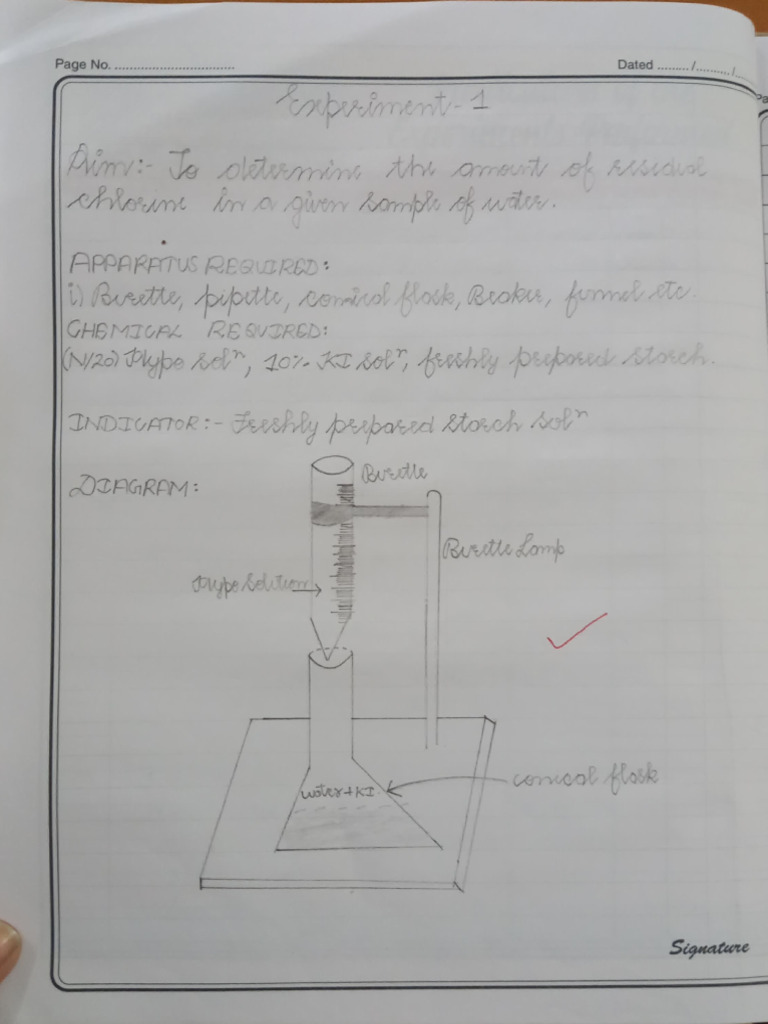 Page No. ..............................
Dated ......../........./....
Experiment-1
Aim:- To determine the amount of residual
chlorine in a given sample of water.
APPARATUS REQUIRED:
i) Burette, pipette, conical flask, Beaker, funnel etc.
CHEMICAL REQUIRED:
(N/20) Hypo solⁿ, 10% KI solⁿ, freshly prepared starch.
INDICATOR:- Freshly prepared starch solⁿ
DIAGRAM:
Burette
Burette Lamp
Hypo Solution
water+KI
conical flask
Signature